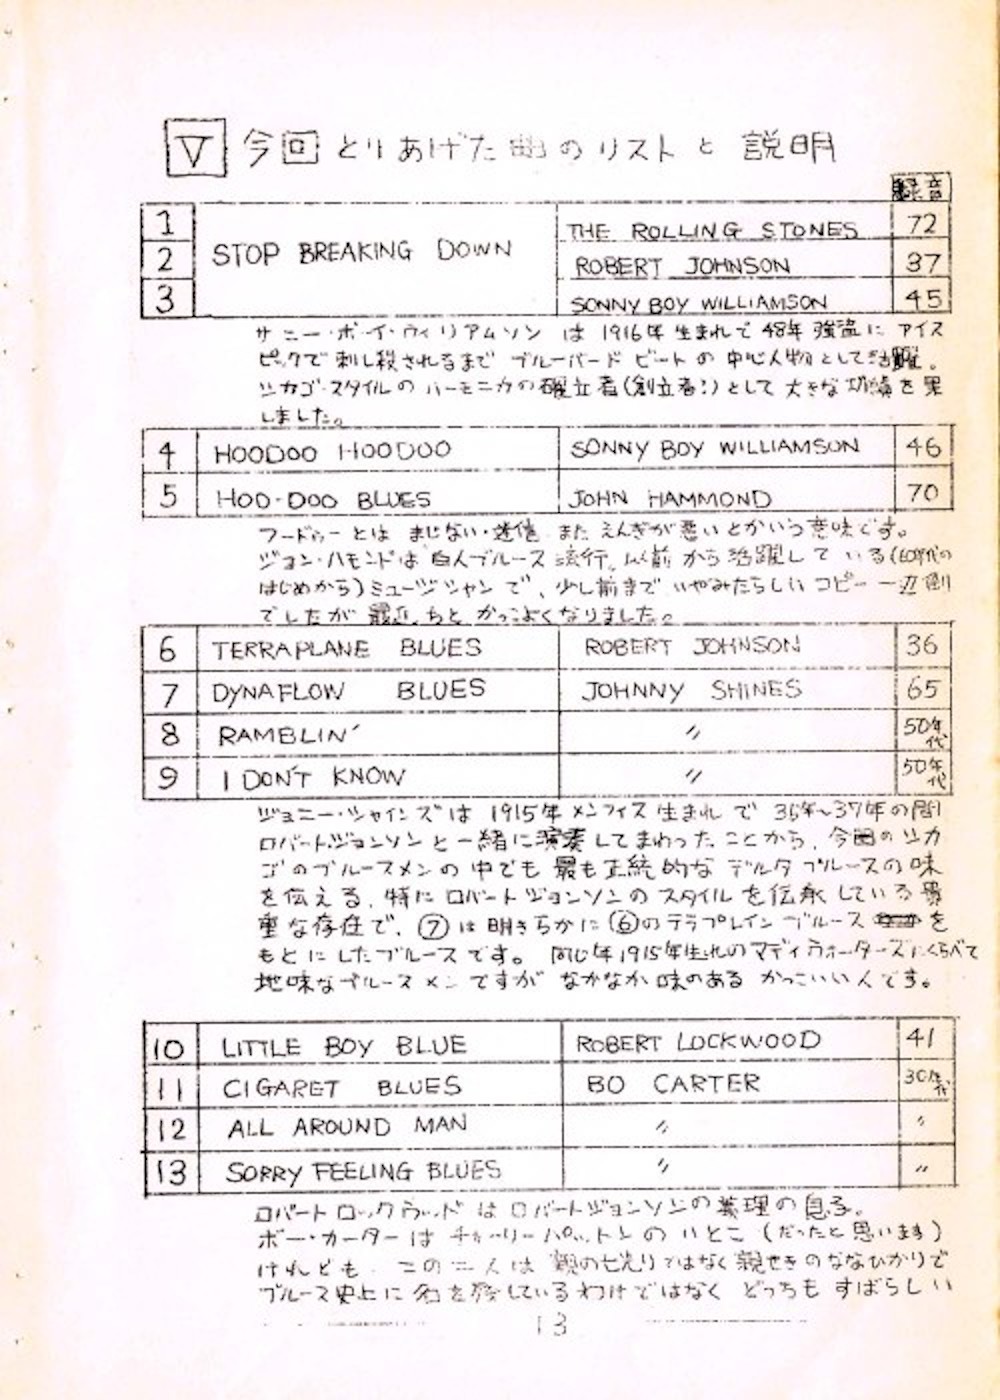 V 今回とりあげた曲のリストと説明
録音
1 STOP BREAKING DOWN THE ROLLING STONES 72
2 ROBERT JOHNSON 37
3 SONNY BOY WILLIAMSON 45
サニー・ボーイ・ウィリアムソン は 1916年 生まれで 48年 強盗に アイス
ピックで 刺し殺されるまで ブルーバード ビートの 中心人物として活躍。
シカゴ・スタイルの ハーモニカの確立者(創立者?)として 大きな功績を果
しました。
4 HOODOO HOODOO SONNY BOY WILLIAMSON 46
5 HOO-DOO BLUES JOHN HAMMOND 70
フードゥー とは まじない・迷信 また えんぎが悪いとかいう意味です。
ジョン・ハモンドは 白人ブルース 流行 以前 から 活躍している(60年代の
はじめから)ミュージシャンで、少し前まで いやみたらしい コピー 一辺倒
でしたが 最近 ちと かっこよくなりました。
6 TERRAPLANE BLUES ROBERT JOHNSON 36
7 DYNAFLOW BLUES JOHNNY SHINES 65
8 RAMBLIN' 〃 50年代
9 I DON'T KNOW 〃 50年代
ジョニー・シャインズは 1915年メンフィス 生まれ で 35年~37年の間
ロバートジョンソンと一緒に演奏してまわったことから、今回のシカ
ゴのブルースメンの中でも 最も正統的な デルタ ブルースの味
を伝える、特に ロバートジョンソンのスタイルを伝承している貴
重な存在で、⑦は明きらかに⑥のテラプレイン ブルース を
もとにしたブルースです。 同じ年1915年生れのマディウォーターズにくらべて
地味なブルースメンですが なかなか 味のある かっこいい人です。
10 LITTLE BOY BLUE ROBERT LOCKWOOD 41
11 CIGARET BLUES BO CARTER 30年代
12 ALL AROUND MAN 〃 〃
13 SORRY FEELING BLUES 〃 〃
ロバート ロックウッド は ロバートジョンソンの義理の息子。
ボー・カーター は チャーリーパットンの いとこ (だったと思います)
けれども この二人は 親の七光りではなく 親せきのななひかりで
ブルース史上に 名を残しているわけではなく どっちも すばらしい
13